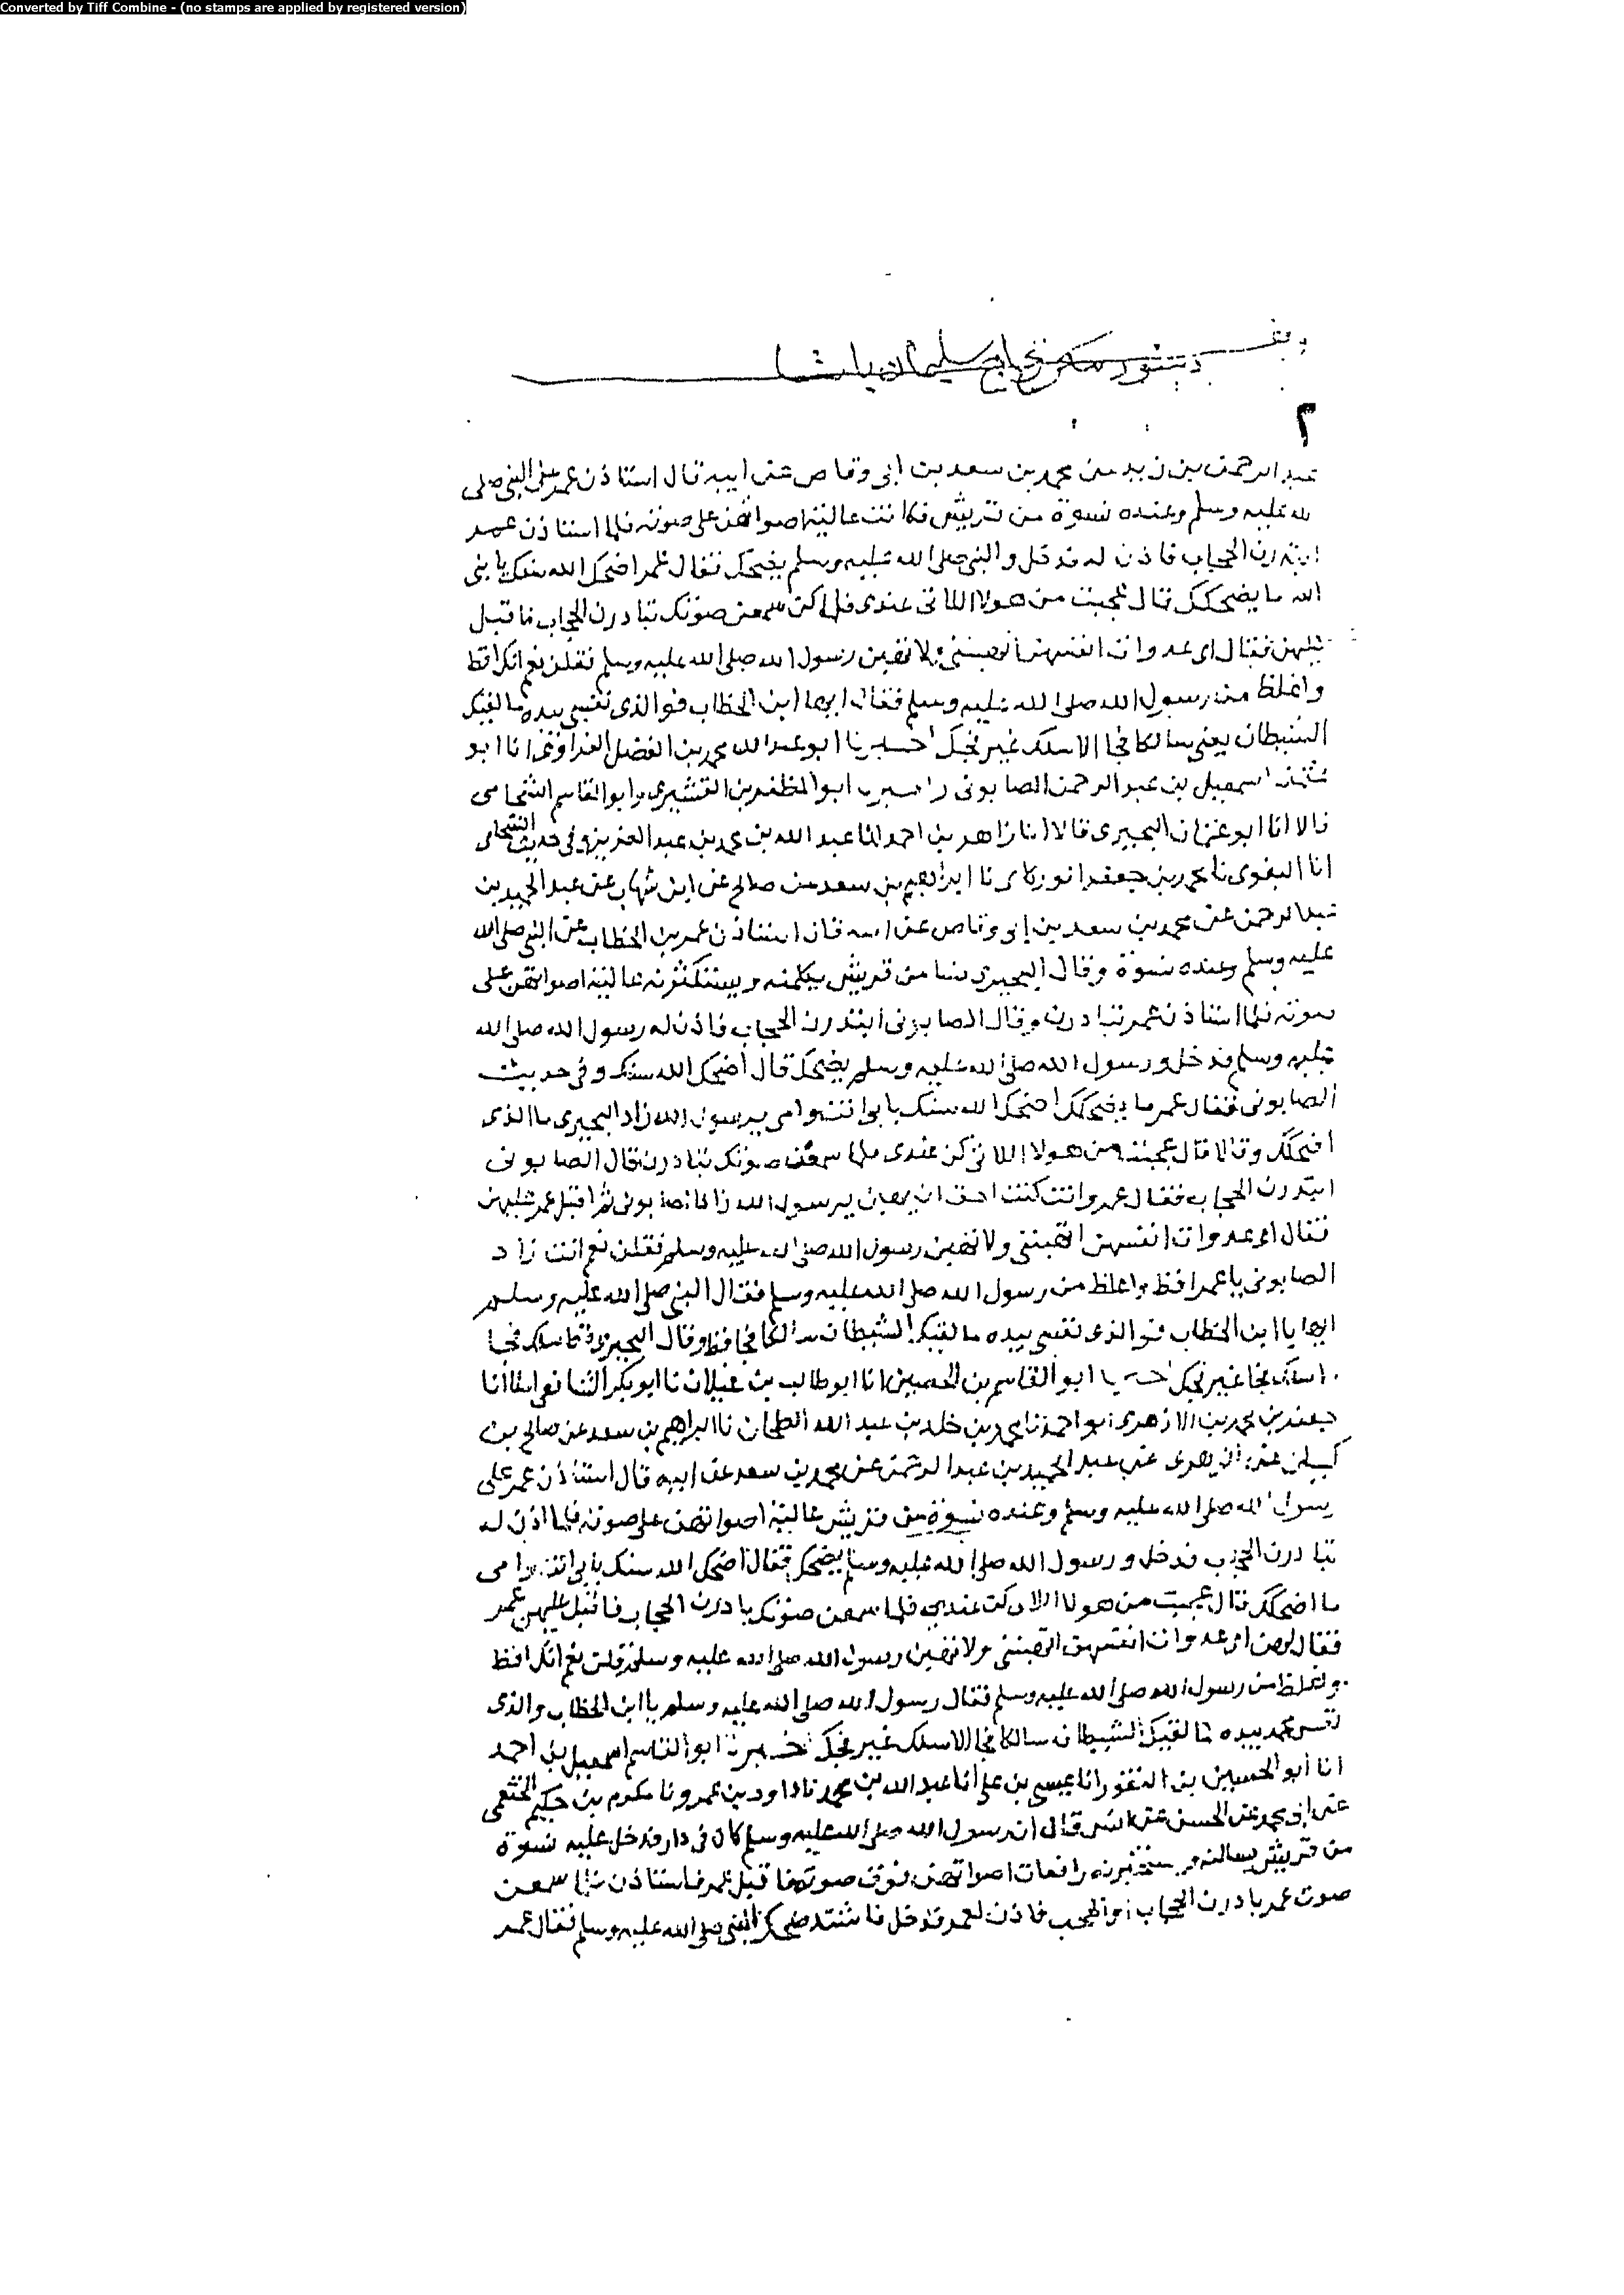 Converted by Tiff Combine - (no stamps are applied by registered version)
وقف
دستور مكرم الحاج سليمان باشا
٢
عبد الرحمن بن زيد عن محمد بن سعد بن ابى وقاص عن ابيه قال استاذن عمر على النبى صلى
لله عليه وسلم وعنده نسوة من قريش فكانت عالية اصواتهن على صوته فلما استاذن عمر
ابتدرن الحجاب فاذن له فدخل والنبى صلى الله عليه وسلم يضحك فقال عمر اضحك الله سنك يا نبى
الله ما يضحكك قال عجبت من هولا اللاتى عندى فلما سمعن صوتك تبادرن الحجاب فاقبل
عليهن فقال اى عدوات انفسهن اتهبننى ولا تهبن رسول الله صلى الله عليه وسلم فقلن نعم انك افظ
واغلظ من رسول الله صلى الله عليه وسلم فقال ايها ابن الخطاب فوالذى نفسى بيده ما لقيك
الشيطان يعنى سالكا فجا الا سلك غير فجك اخبرنا ابو عبد الله محمد بن الفضل الفراوى انا ابو
عثمان اسمعيل بن عبد الرحمن الصابونى واخبرنا ابو المظفر بن القشيرى وابو القاسم الشحامى
قالا انا ابو عثمان البحيرى قالا انا زاهر بن احمد انا عبد الله بن محمد بن عبد العزيز وفى حديث الشحامى
انا البغوى نا محمد بن جعفر الوركانى نا ابراهيم بن سعد عن صالح عن ابن شهاب عن عبد الحميد بن
عبد الرحمن عن محمد بن سعد بن ابى وقاص عن ابيه قال استاذن عمر بن الخطاب على النبى صلى الله
عليه وسلم وعنده نسوة وقال البحيرى نسا من قريش يكلمنه ويستكثرنه عالية اصواتهن على
صوته فلما استاذن عمر تبادرن وقال الصابونى ابتدرن الحجاب فاذن له رسول الله صلى الله
عليه وسلم فدخل ورسول الله صلى الله عليه وسلم يضحك قال اضحك الله سنك وفى حديث
الصابونى فقال عمر ما يضحكك اضحك الله سنك بابى انت وامى يرسول الله زاد البحيرى ما الذى
اضحكك وقالا قال عجبت من هولا اللاتى كن عندى فلما سمعن صوتك تبادرن قال الصابونى
ابتدرن الحجاب فقال عمر وانت كنت احق ان يهبن يرسول الله زاد الصابونى ثم اقبل عمر عليهن
فقال اى عدوات انفسهن اتهبننى ولا تهبن رسول الله صلى الله عليه وسلم فقلن نعم انت زاد
الصابونى يا عمر افظ واغلظ من رسول الله صلى الله عليه وسلم فقال النبى صلى الله عليه وسلم
ايها يا ابن الخطاب فوالذى نفسى بيده ما لقيك الشيطان سالكا فجا قط وقال البحيرى فتاسلك فجا
اسلك فجا غير فجك اخبرنا ابو القاسم بن الحصين انا ابو طالب بن غيلان نا ابو بكر الشافعى املا انا
جعفر بن محمد بن الازهرى ابو احمد نا محمد بن خلد بن عبد الله الطحان نا ابراهيم بن سعد عن صالح بن
كيسان عن الزهرى عن عبد الحميد بن عبد الرحمن عن محمد بن سعد عن ابيه قال استاذن عمر على
رسول الله صلى الله عليه وسلم وعنده نسوة من قريش عالية اصواتهن على صوته فلما اذن له
تبادرن الحجاب فدخل ورسول الله صلى الله عليه وسلم يضحك فقال اضحك الله سنك بابى انت وامى
ما اضحكك قال عجبت من هولا اللاتى كن عندى فلما سمعن صوتك بادرن الحجاب فاقبل عليهن عمر
فقال لهن اى عدوات انفسهن اتهبننى ولا تهبن رسول الله صلى الله عليه وسلم قلن نعم انك افظ
واغلظ من رسول الله صلى الله عليه وسلم فقال رسول الله صلى الله عليه وسلم يا ابن الخطاب والذى
نفس محمد بيده ما لقيك الشيطان سالكا فجا الا سلك غير فجك اخبرنا ابو القاسم اسمعيل بن احمد
انا أبو الحسين بن النقور انا عيسى بن على انا عبد الله بن محمد نا داود بن عمرو نا مكرم بن حكيم الخثعمى
عن ابى محمد عن الحسن عن انس قال ان رسول الله صلى الله عليه وسلم كان فى دار فدخل عليه نسوة
من قريش يسالنه ويستخبرنه رافعات اصواتهن فوق صوته فاقبل عمر فاستاذن فلما سمعن
صوت عمر بادرن الحجاب او الحجب فاذن لعمر فدخل فاشتد ضحك النبى صلى الله عليه وسلم فقال عمر